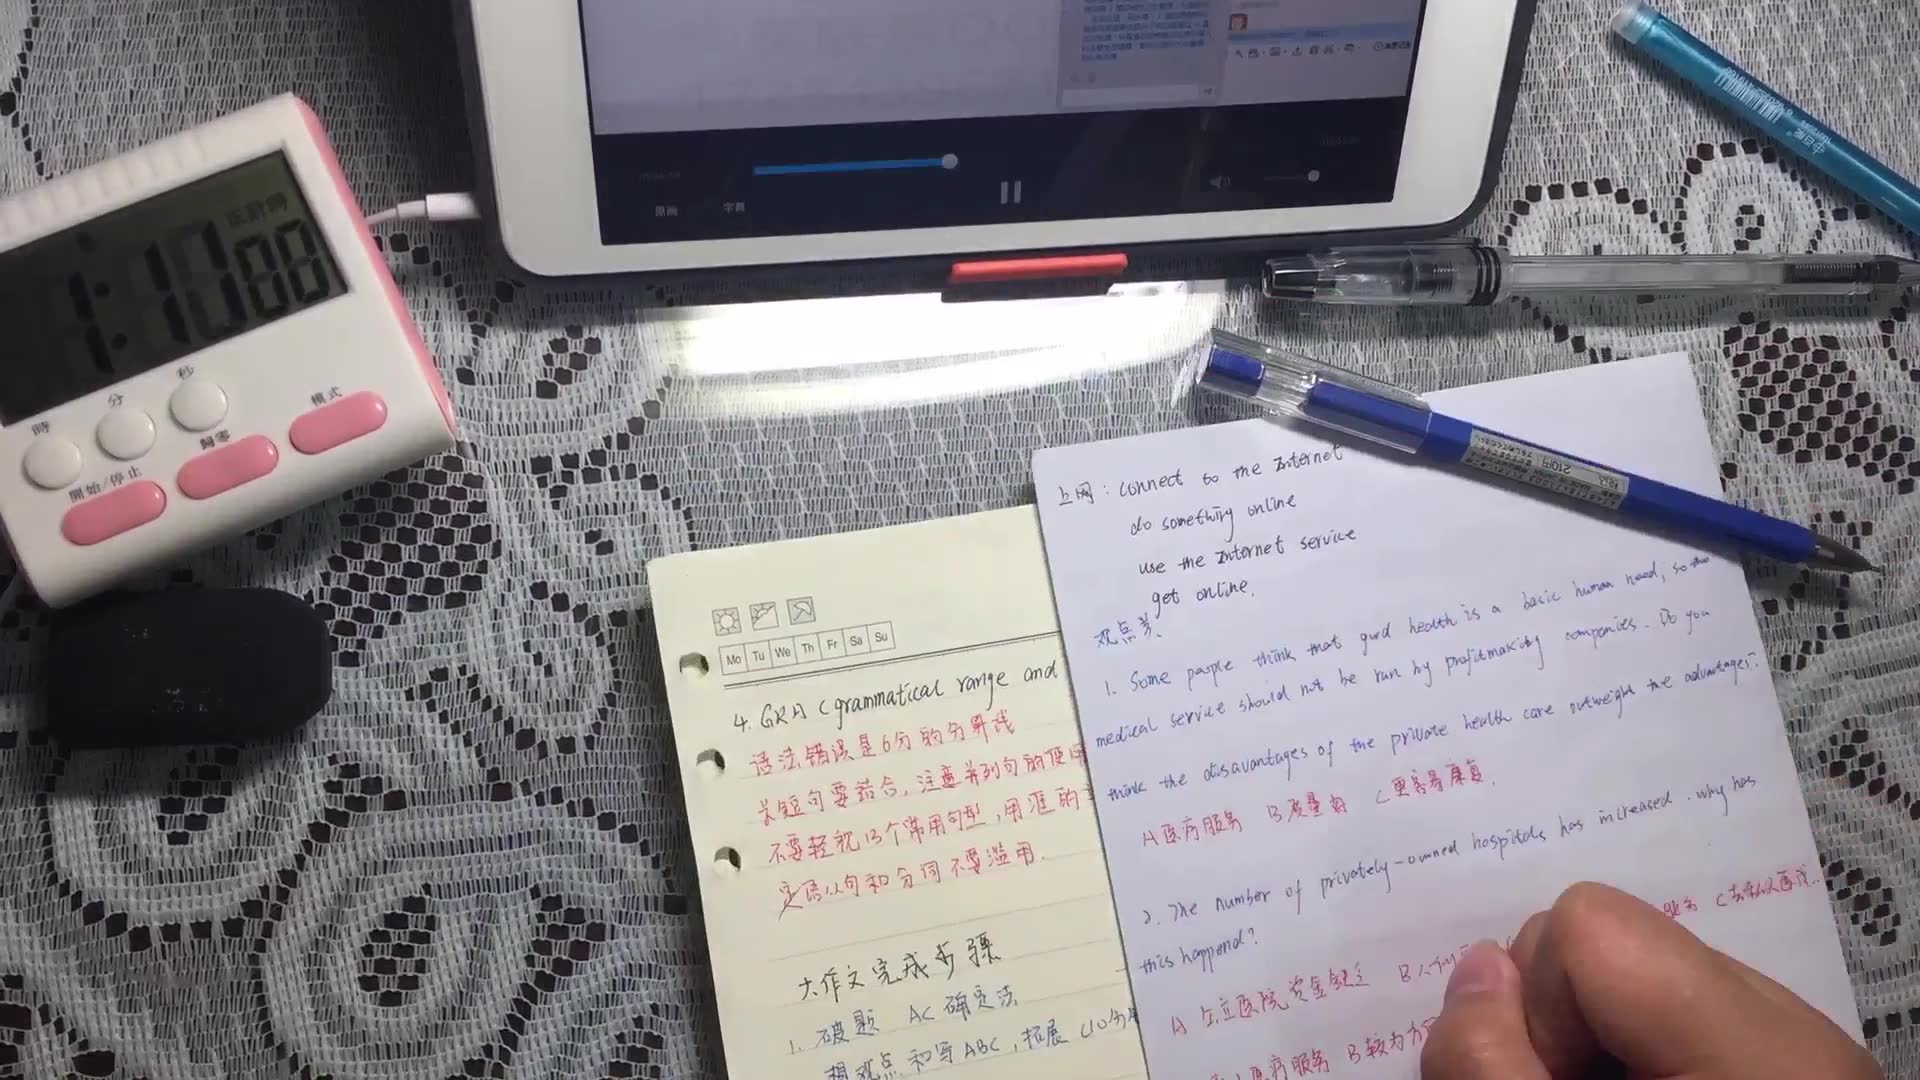 原画
字幕
正計時
1:17 00
時
分
秒
模式
歸零
開始/停止
210円
Mo Tu We Th Fr Sa Su
4. GRA (grammatical range and
语法错误是6分的分界线
长短句要结合,注意并列句的使用
不要轻视13个常用句型,用准的
定语从句和分词不要滥用.
大作文完成步骤
1. 破题 AC确定法
想观点和写ABC,拓展(10分钟
上网: connect to the Internet
do something online
use the Internet service
get online.
观点类.
1. Some people think that good health is a basic human need, so the
medical service should not be run by profitmaking companies. Do you
think the disavantages of the private health care outweight the advantages?
A医疗服务 B质量好 C更容易康复.
2. The number of privately-owned hospitals has increased. why has
this happend?
A 公立医院资金缺乏 B
医疗服务 B较为方